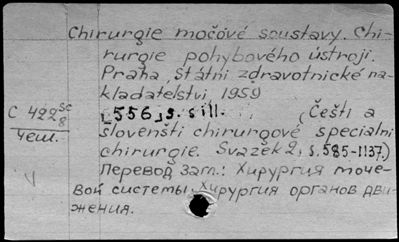 Chirurgie močové soustavy. Chi-
rurgie pohybového ústrojí.
Praha, Státní zdravotnické na-
kladatelství, 1959
C 422 sc/8
чеш.
[556] s. s ill. (Čeští a
slovenští chirurgové speciální
chirurgie. Svazek 2, s. 585-1137.)
Перевод заг.: Хирургия моче-
вой системы. Хирургия органов дви-
жения.